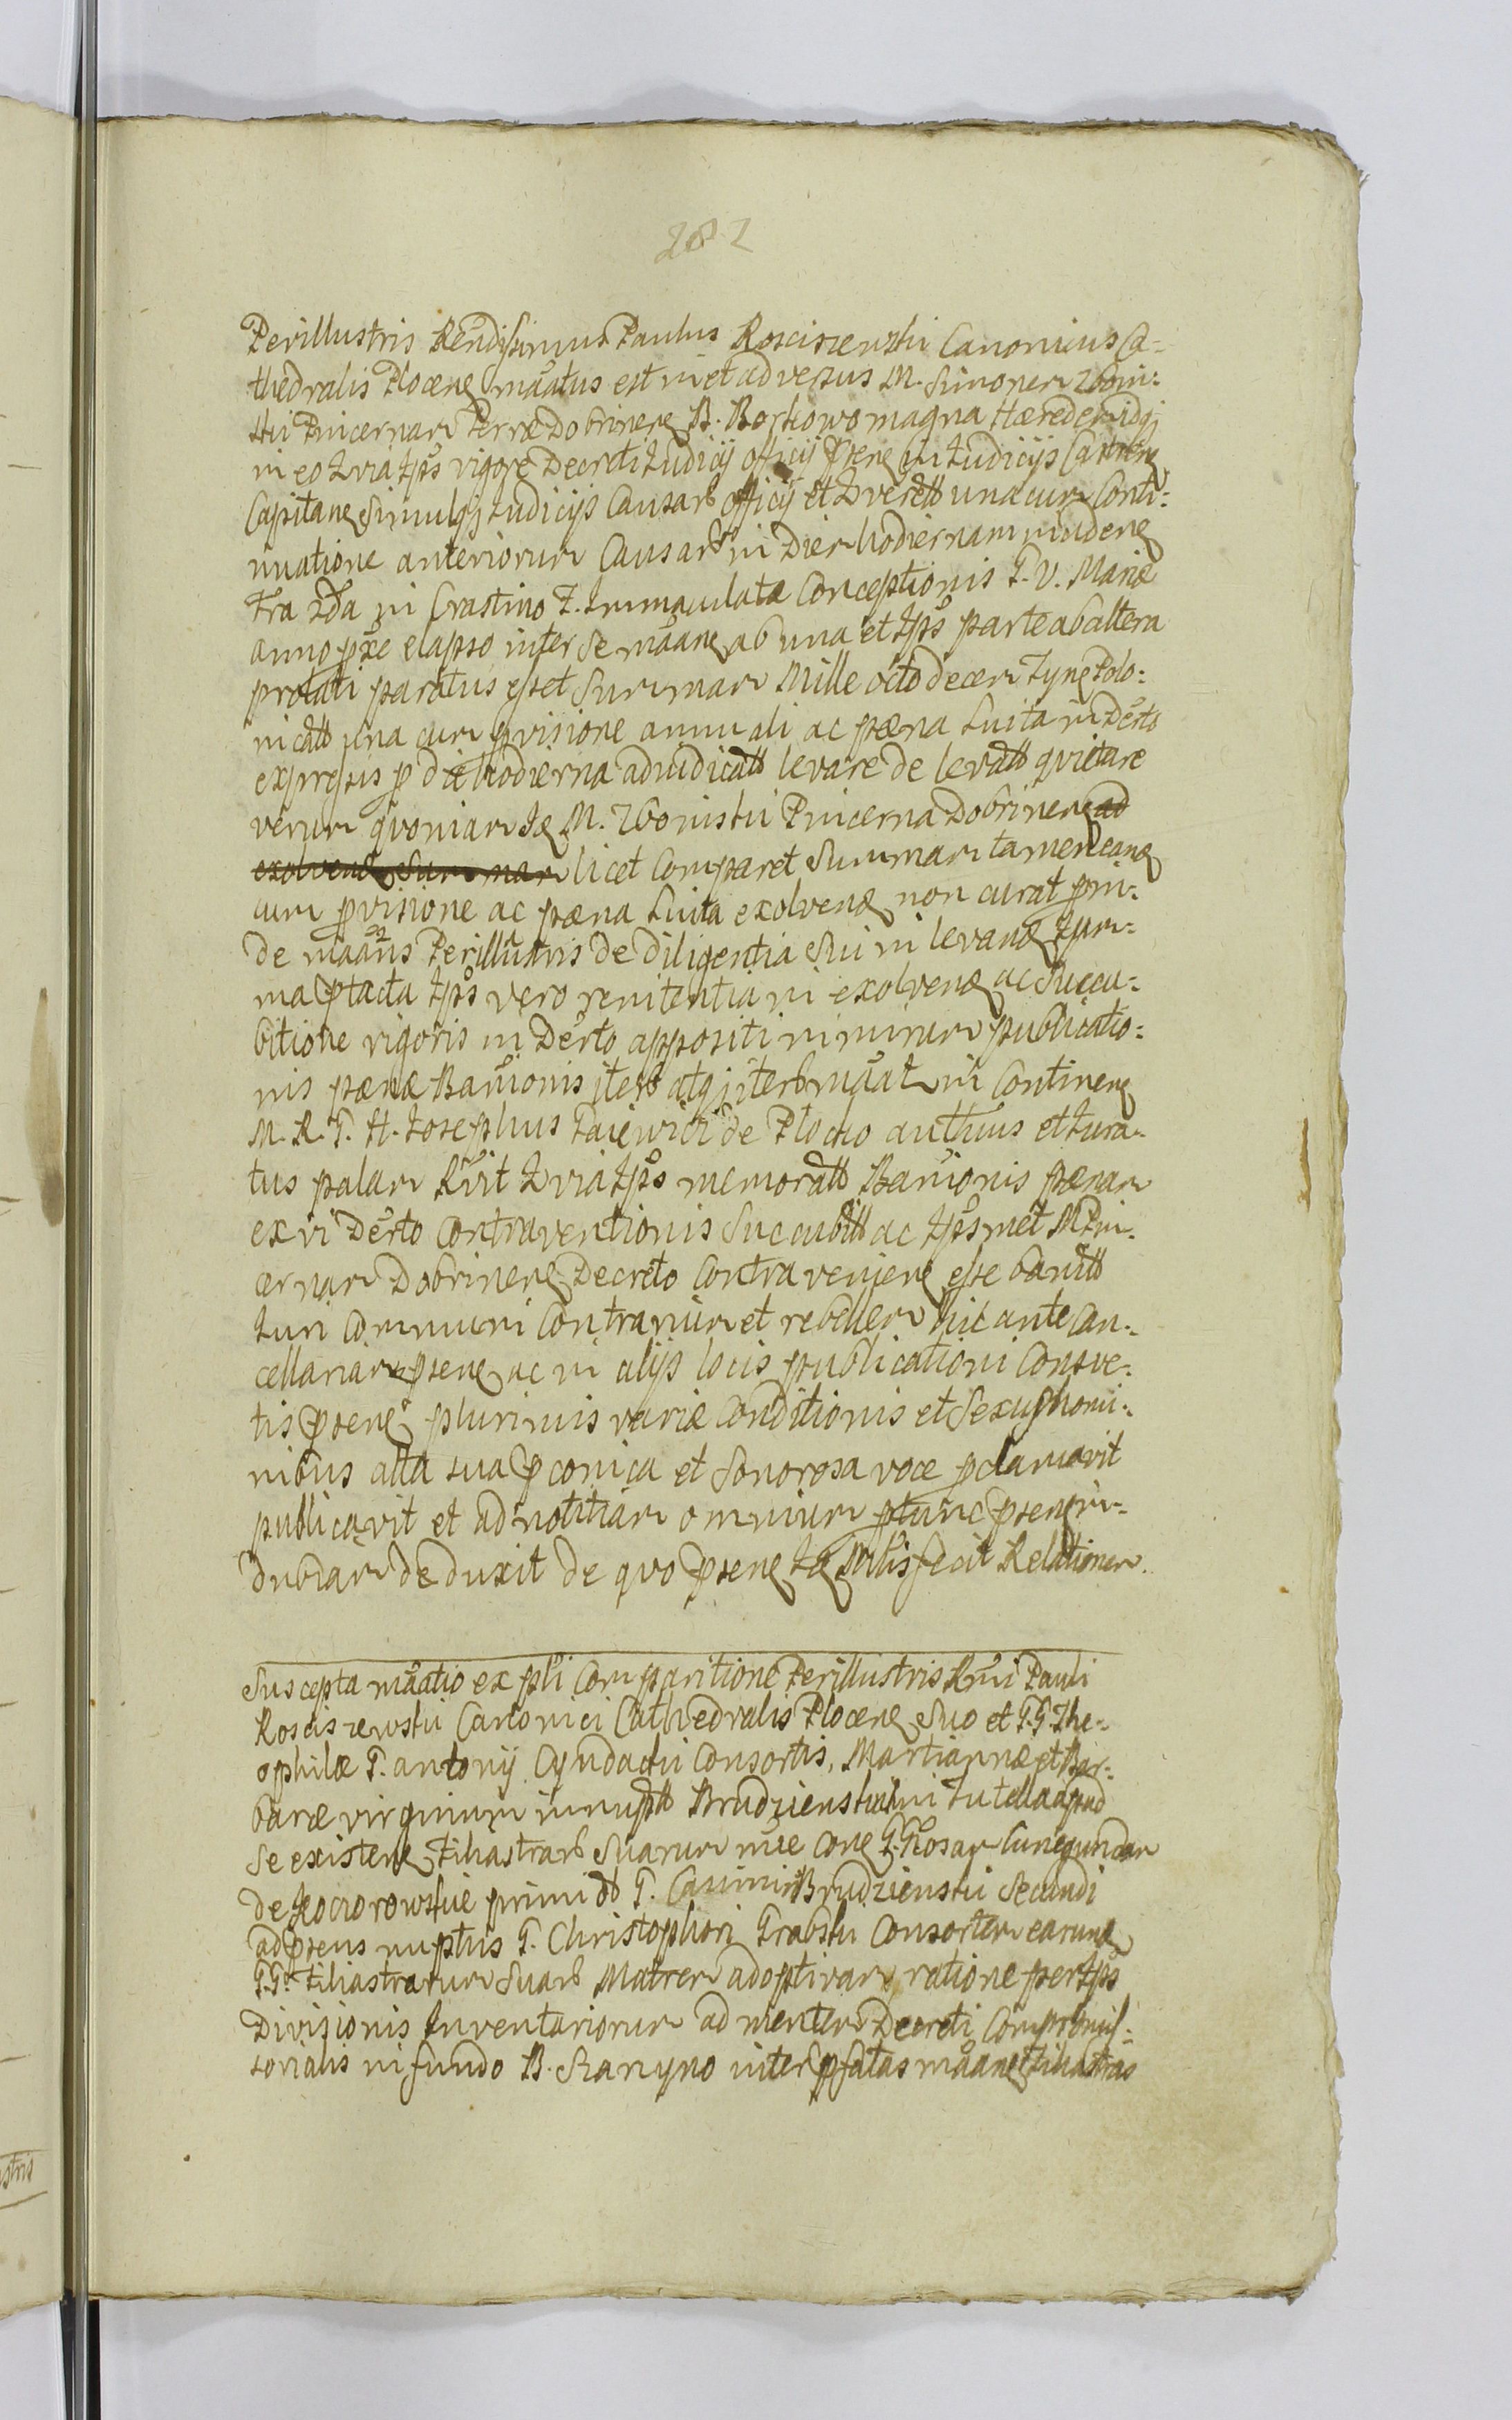 282
Perillustris Rendissimus Paulus Rosciszewski Canonicus Ca-
thedralis Plocen mãatus est in et adversus M. Simonem Zboin-
ski Pincernam Terræ Dobrinen B. Borkowo magna Hæredem idq
in eo quia Ips vigore Decreti Judicij officij Psen in Judicijs Castren
Capitan Simulq Judicijs Causarb officij et una cum Conti-
nuatione anteriorum Causarb in Diem hodiernam inciden
Fra 2da in Crastino F. Immaculatæ Conceptionis B. V. Mariæ
anno pxe elapso inter se mãan ab una et Ips parte ab altera
prolati paratus esset Summam Mille octodecem Tyn Polo-
nicalb una cum pvisione annuali ac pæna Luita in Derto
expressis p die hodierna adiudicatt levare de levatt quietare
verum quoniam Id M. Zboinski Pincerna Dobrinen ad
exolvend Summam licet Comparet Summam tamen ean
cum pvisione ac pæna Luita exolven non curat proin-
de mãans Perillustris de diligentia Sui in levan Sum-
ma Ptacta Ips vero renitentia in exolven ac Succu-
bitione rigoris in Derto appositi nimirum publicatio-
nis pænæ Banionis iterb atq iterb mãat in Continen
M. R. G. H. Josephus de Plocko authus et Jura-
tus palam Rvit quia Ips memoratt Banionis pænam
ex vi Derto Contraventionis Succubitt ac Ipsmet M Pin-
cernam Dobrinen Decreto Contravenien esse banitt
Juri Communi Contrarium et rebellem hic ante Can-
cellariam psen ac in alijs locis publicationi Consve-
tis Psen plurimis variæ Conditionis et Sexus homi-
nibus alta sua Pconica et Sonorosa voce pclamavit
publicavit et ad notitiam omnium ptunc psen in-
dubiam deduxit de quo Psen Id Mtis fecit Relationem.
Suscepta mãatio ex pli Comparitione Perillustris Rmi Pauli
Rosciszewski Canonici Cathedralis Plocen Suo et G.G. The-
ophilæ G. Antonij Consortis, Martiannæ et Bar-
baræ virginum innuptt Brudzienskich in tutella apud
Se existen Filiastrarb Suarum nie Cone G. Rosam Cunegundam
de Kochorowskie primi db G. Casimiri Brudzienski Secundi
ad Psens nuptus G. Christophori Grabski Consortem earund
G.G. Filiastrarum Suarb Matrem adoptivam ratione per Ips
Divisionis Inventariorum ad mentem Decreti Compromis-
sorialis in fundo B. inter pfatas mãan et Filiastras